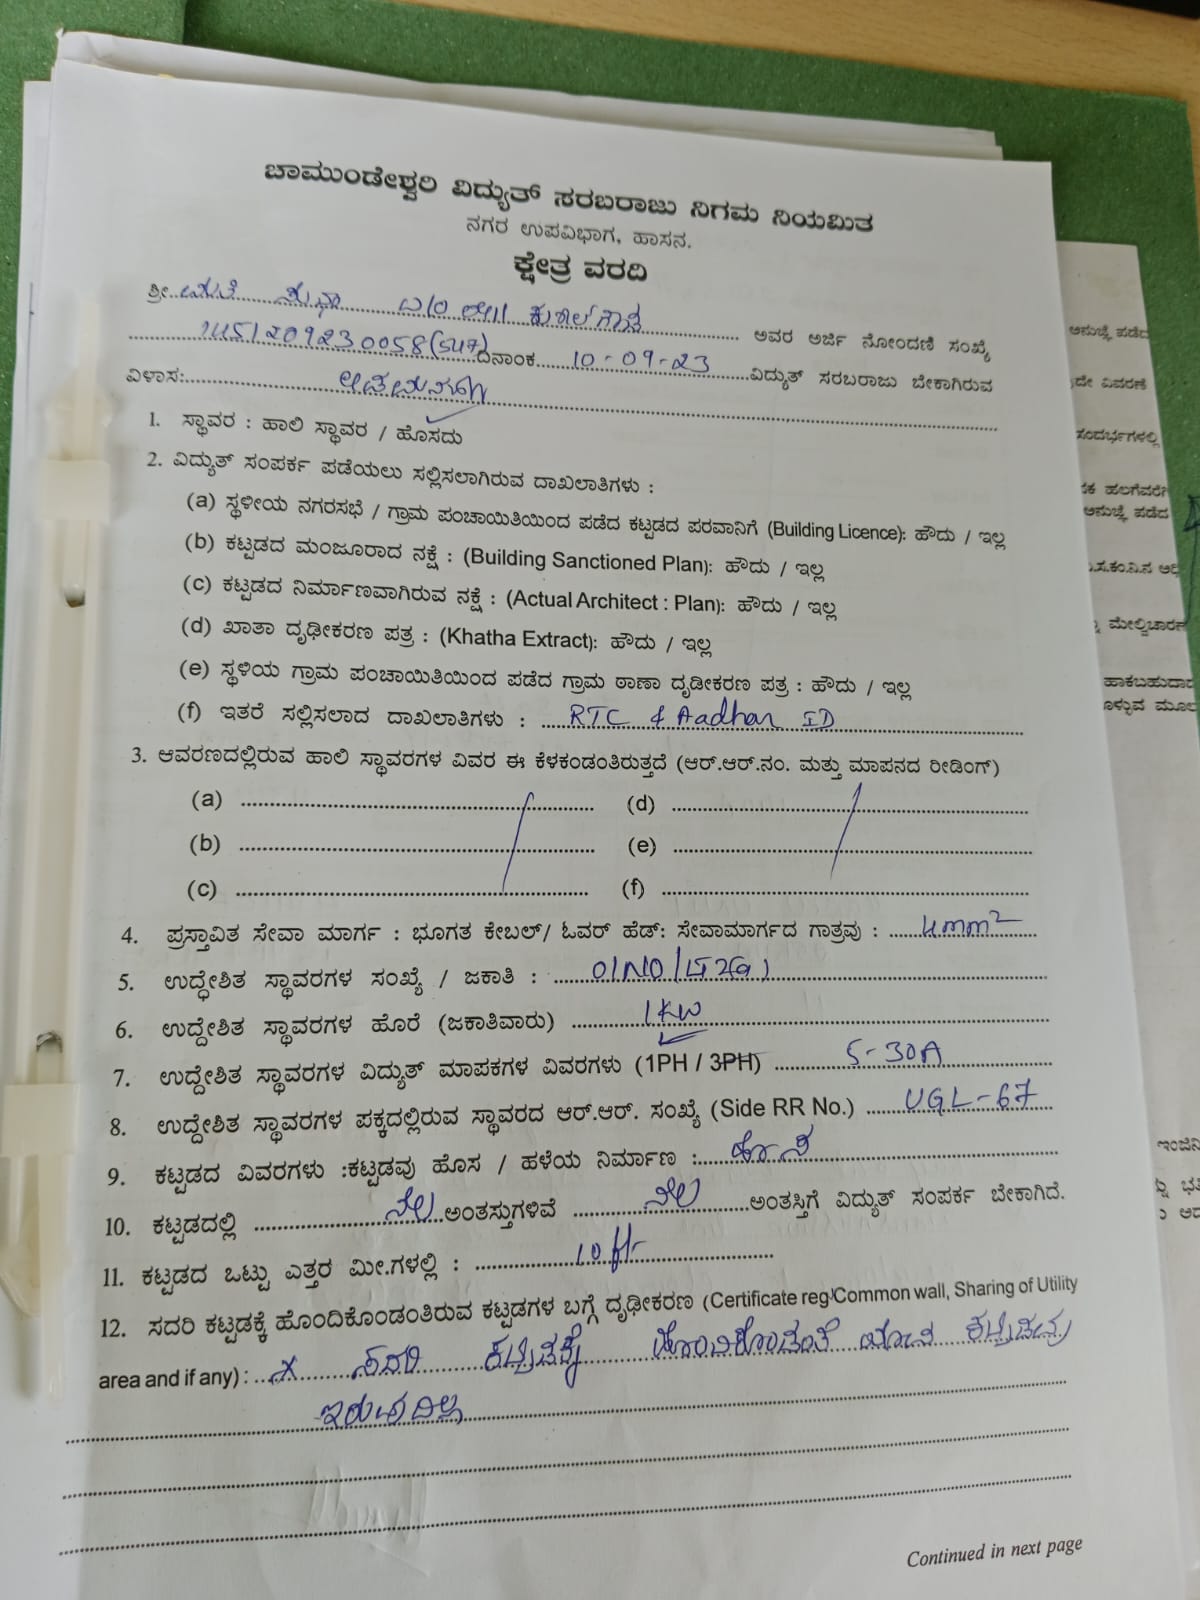 ಚಾಮುಂಡೇಶ್ವರಿ ವಿದ್ಯುತ್ ಸರಬರಾಜು ನಿಗಮ ನಿಯಮಿತ
ನಗರ ಉಪವಿಭಾಗ, ಹಾಸನ.
ಕ್ಷೇತ್ರ ವರದಿ
ಶ್ರೀ. ಅವರ ಅರ್ಜಿ ನೋಂದಣಿ ಸಂಖ್ಯೆ
1451209230058(547) ದಿನಾಂಕ 10-09-23 ವಿದ್ಯುತ್ ಸರಬರಾಜು ಬೇಕಾಗಿರುವ
ವಿಳಾಸ:
1. ಸ್ಥಾವರ : ಹಾಲಿ ಸ್ಥಾವರ / ಹೊಸದು
2. ವಿದ್ಯುತ್ ಸಂಪರ್ಕ ಪಡೆಯಲು ಸಲ್ಲಿಸಲಾಗಿರುವ ದಾಖಲಾತಿಗಳು :
(a) ಸ್ಥಳೀಯ ನಗರಸಭೆ / ಗ್ರಾಮ ಪಂಚಾಯಿತಿಯಿಂದ ಪಡೆದ ಕಟ್ಟಡದ ಪರವಾನಿಗೆ (Building Licence): ಹೌದು / ಇಲ್ಲ
(b) ಕಟ್ಟಡದ ಮಂಜೂರಾದ ನಕ್ಷೆ : (Building Sanctioned Plan): ಹೌದು / ಇಲ್ಲ
(c) ಕಟ್ಟಡದ ನಿರ್ಮಾಣವಾಗಿರುವ ನಕ್ಷೆ : (Actual Architect : Plan): ಹೌದು / ಇಲ್ಲ
(d) ಖಾತಾ ದೃಢೀಕರಣ ಪತ್ರ : (Khatha Extract): ಹೌದು / ಇಲ್ಲ
(e) ಸ್ಥಳಿಯ ಗ್ರಾಮ ಪಂಚಾಯಿತಿಯಿಂದ ಪಡೆದ ಗ್ರಾಮ ಠಾಣಾ ದೃಡೀಕರಣ ಪತ್ರ : ಹೌದು / ಇಲ್ಲ
(f) ಇತರೆ ಸಲ್ಲಿಸಲಾದ ದಾಖಲಾತಿಗಳು : RTC & Aadhar ID
3. ಆವರಣದಲ್ಲಿರುವ ಹಾಲಿ ಸ್ಥಾವರಗಳ ವಿವರ ಈ ಕೆಳಕಂಡಂತಿರುತ್ತದೆ (ಆರ್.ಆರ್.ನಂ. ಮತ್ತು ಮಾಪನದ ರೀಡಿಂಗ್)
(a) (d)
(b) (e)
(c) (f)
4. ಪ್ರಸ್ತಾವಿತ ಸೇವಾ ಮಾರ್ಗ : ಭೂಗತ ಕೇಬಲ್/ ಓವರ್ ಹೆಡ್: ಸೇವಾಮಾರ್ಗದ ಗಾತ್ರವು : 4mm²
5. ಉದ್ಧೇಶಿತ ಸ್ಥಾವರಗಳ ಸಂಖ್ಯೆ / ಜಕಾತಿ : 01NO
6. ಉದ್ದೇಶಿತ ಸ್ಥಾವರಗಳ ಹೊರೆ (ಜಕಾತಿವಾರು) 1KW
7. ಉದ್ದೇಶಿತ ಸ್ಥಾವರಗಳ ವಿದ್ಯುತ್ ಮಾಪಕಗಳ ವಿವರಗಳು (1PH / 3PH) 5-30A
8. ಉದ್ದೇಶಿತ ಸ್ಥಾವರಗಳ ಪಕ್ಕದಲ್ಲಿರುವ ಸ್ಥಾವರದ ಆರ್.ಆರ್. ಸಂಖ್ಯೆ (Side RR No.) UGL-67
9. ಕಟ್ಟಡದ ವಿವರಗಳು :ಕಟ್ಟಡವು ಹೊಸ / ಹಳೆಯ ನಿರ್ಮಾಣ : ಹೊಸ
10. ಕಟ್ಟಡದಲ್ಲಿ ನೆಲ ಅಂತಸ್ತುಗಳಿವೆ ನೆಲ ಅಂತಸ್ತಿಗೆ ವಿದ್ಯುತ್ ಸಂಪರ್ಕ ಬೇಕಾಗಿದೆ.
11. ಕಟ್ಟಡದ ಒಟ್ಟು ಎತ್ತರ ಮೀ.ಗಳಲ್ಲಿ : 10 ft
12. ಸದರಿ ಕಟ್ಟಡಕ್ಕೆ ಹೊಂದಿಕೊಂಡಂತಿರುವ ಕಟ್ಟಡಗಳ ಬಗ್ಗೆ ದೃಢೀಕರಣ (Certificate reg/Common wall, Sharing of Utility
area and if any) : ಸದರಿ ಕಟ್ಟಡಕ್ಕೆ ಹೊಂದಿಕೊಂಡಂತೆ ಯಾವ ಕಟ್ಟಡವು
ಇರುವುದಿಲ್ಲ
Continued in next page
ಅನುಜ್ಞೆ ಪಡೆದ
ವಿವರಣೆ
ಸಂದರ್ಭಗಳಲ್ಲಿ
ಅನುಜ್ಞೆ ಪಡೆದ
ಮೇಲ್ವಿಚಾರಣೆ